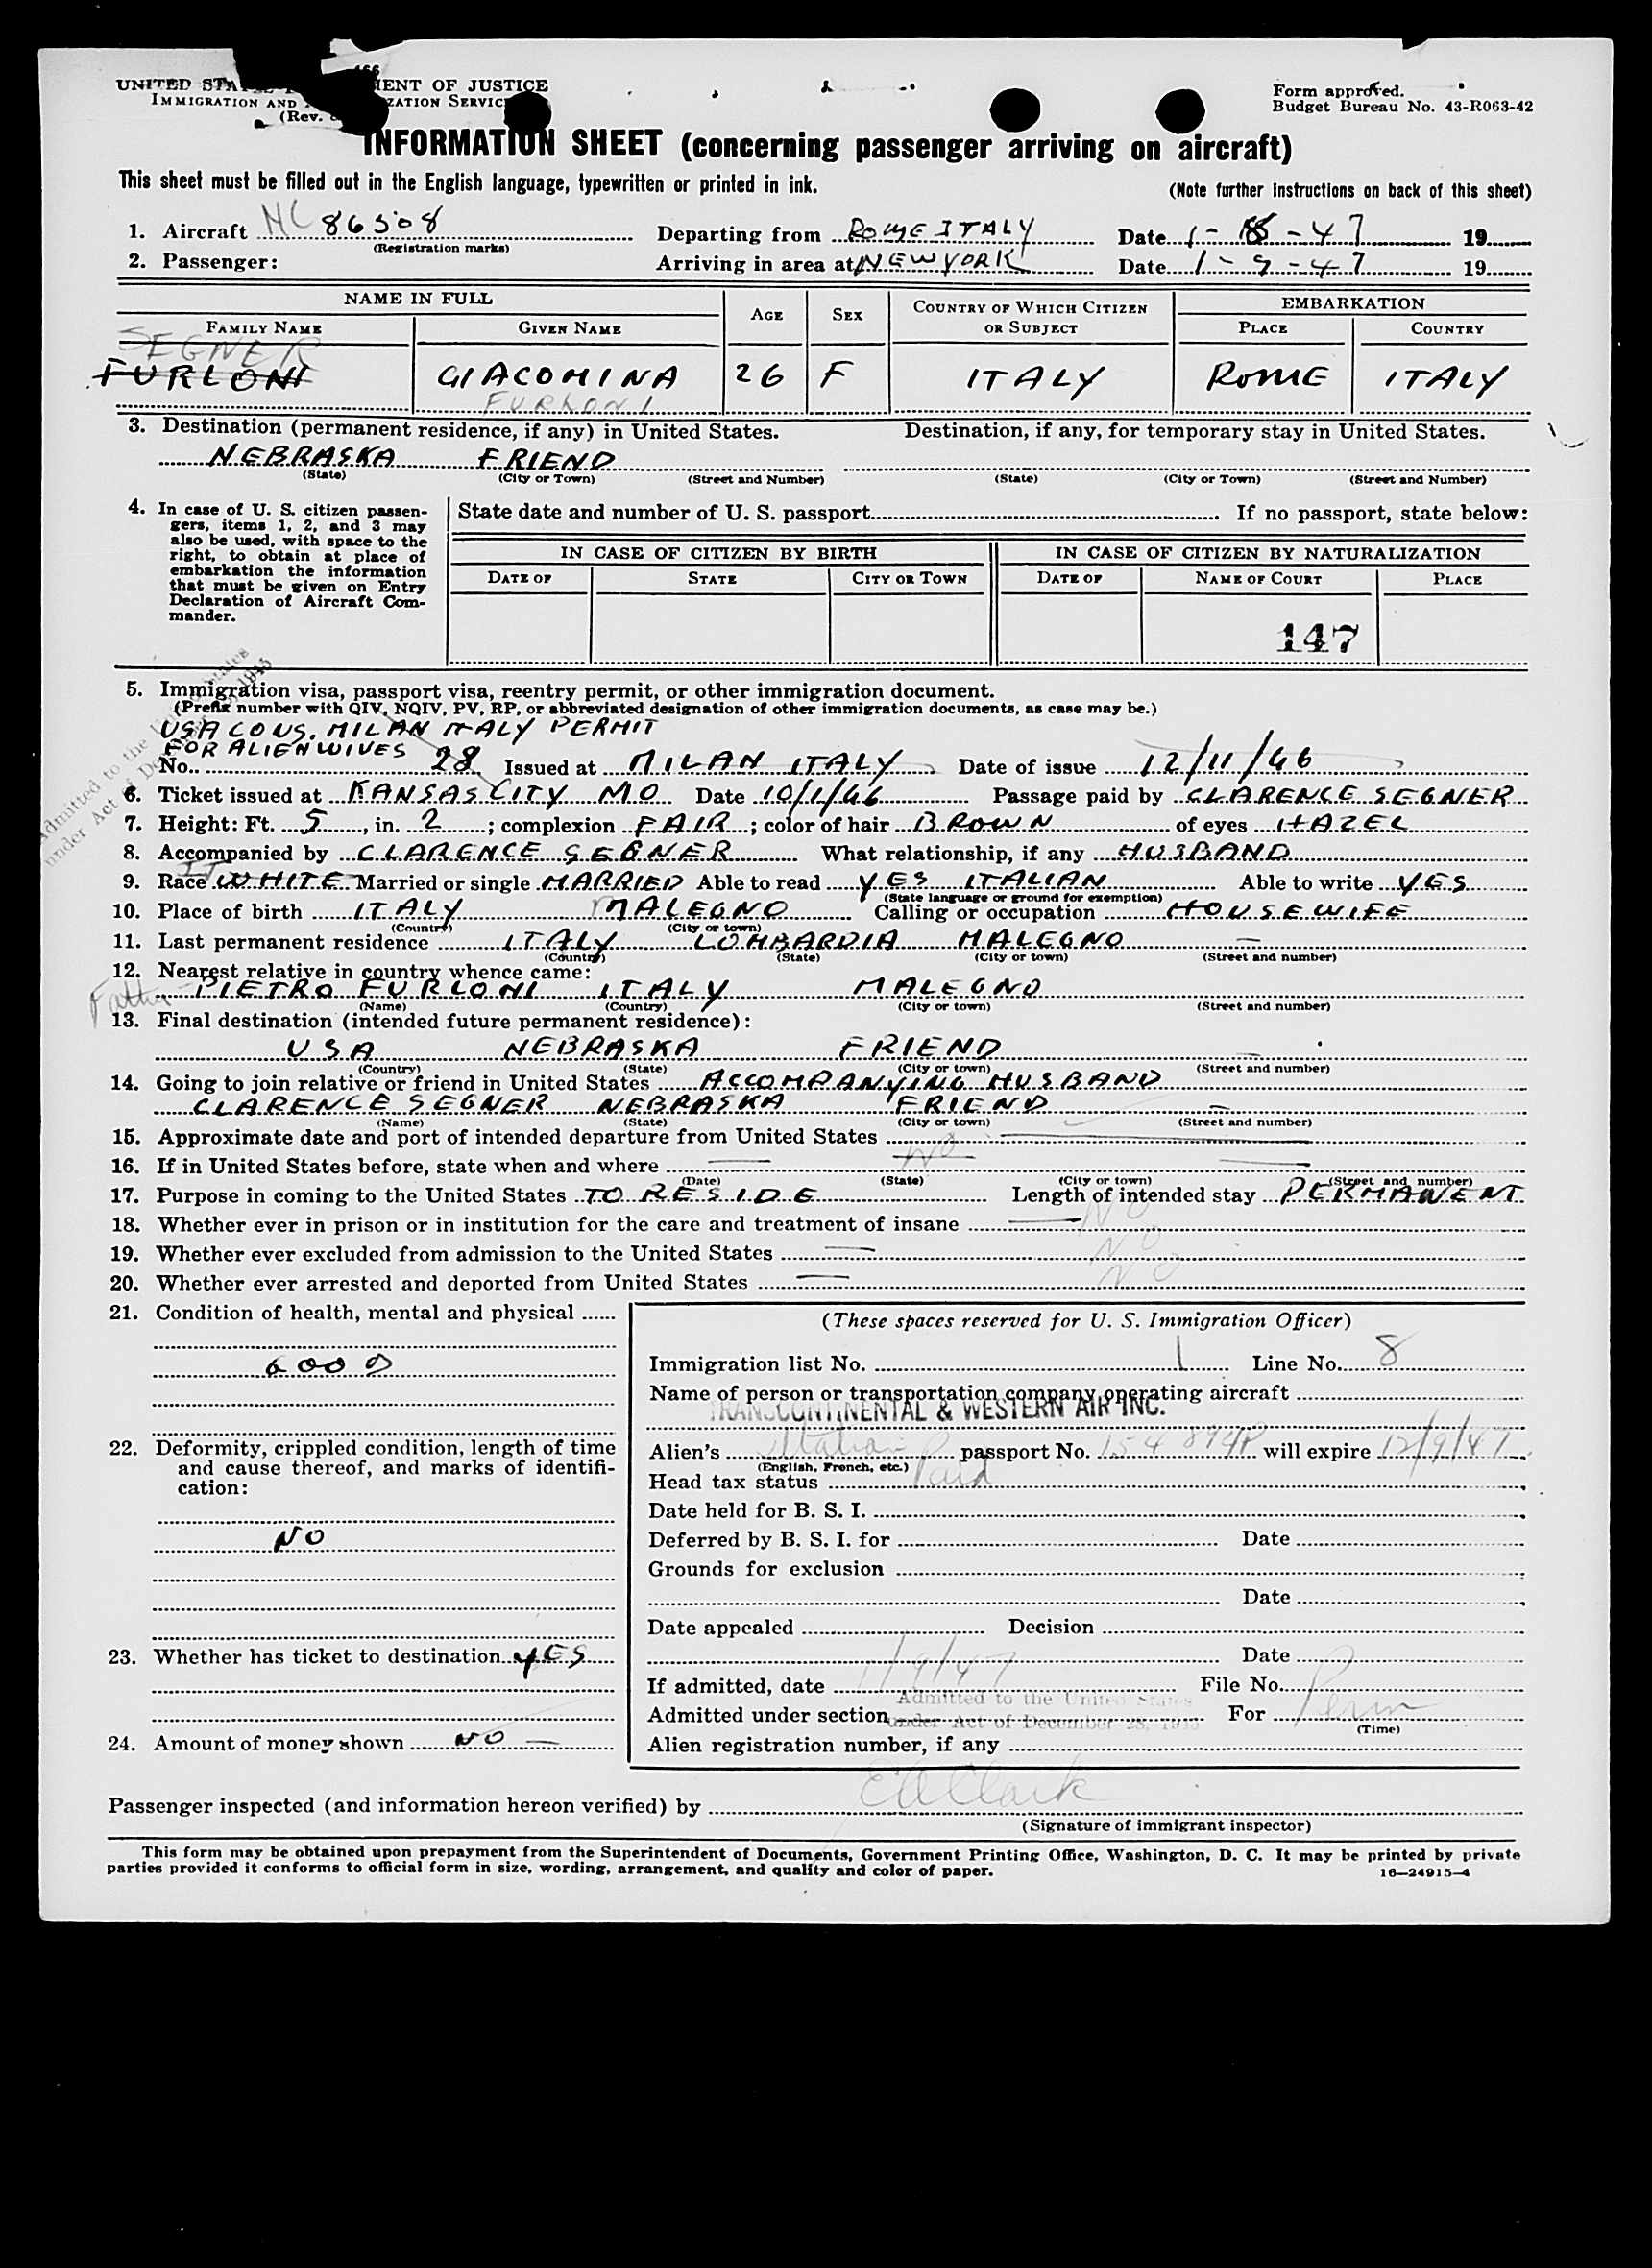 466
UNITED STA ENT OF JUSTICE
IMMIGRATION AND ZATION SERVIC
(Rev.
Form approved.
Budget Bureau No. 43-R063-42
INFORMATION SHEET (concerning passenger arriving on aircraft)
This sheet must be filled out in the English language, typewritten or printed in ink.
(Note further instructions on back of this sheet)
1. Aircraft NC 86508 Departing from ROME ITALY Date 1-8-47 19
(Registration marks)
2. Passenger: Arriving in area at NEW YORK Date 1-9-47 19
NAME IN FULL AGE SEX COUNTRY OF WHICH CITIZEN OR SUBJECT EMBARKATION
FAMILY NAME GIVEN NAME PLACE COUNTRY
SEGNER
FURLONI GIACOMINA 26 F ITALY ROME ITALY
FURLONI
3. Destination (permanent residence, if any) in United States. Destination, if any, for temporary stay in United States.
NEBRASKA FRIEND
(State) (City or Town) (Street and Number) (State) (City or Town) (Street and Number)
4. In case of U. S. citizen passen-
gers, items 1, 2, and 3 may
also be used, with space to the
right, to obtain at place of
embarkation the information
that must be given on Entry
Declaration of Aircraft Com-
mander.
State date and number of U. S. passport If no passport, state below:
IN CASE OF CITIZEN BY BIRTH IN CASE OF CITIZEN BY NATURALIZATION
DATE OF STATE CITY OR TOWN DATE OF NAME OF COURT PLACE
147
Admitted to the United States
under Act of December 28, 1945
5. Immigration visa, passport visa, reentry permit, or other immigration document.
(Prefix number with QIV, NQIV, PV, RP, or abbreviated designation of other immigration documents, as case may be.)
USA CONS. MILAN ITALY PERMIT
FOR ALIEN WIVES
No. 28 Issued at MILAN ITALY Date of issue 12/11/46
6. Ticket issued at KANSAS CITY MO Date 10/1/46 Passage paid by CLARENCE SEGNER
7. Height: Ft. 5, in. 2; complexion FAIR; color of hair BROWN of eyes HAZEL
8. Accompanied by CLARENCE SEGNER What relationship, if any HUSBAND
IT
9. Race WHITE Married or single MARRIED Able to read YES ITALIAN Able to write YES
(State language or ground for exemption)
10. Place of birth ITALY MALEGNO Calling or occupation HOUSEWIFE
(Country) (City or town)
11. Last permanent residence ITALY LOMBARDIA MALEGNO —
(Country) (State) (City or town) (Street and number)
12. Nearest relative in country whence came:
Father PIETRO FURLONI ITALY MALEGNO
(Name) (Country) (City or town) (Street and number)
13. Final destination (intended future permanent residence):
USA NEBRASKA FRIEND —
(Country) (State) (City or town) (Street and number)
14. Going to join relative or friend in United States ACCOMPANYING HUSBAND
CLARENCE SEGNER NEBRASKA FRIEND —
(Name) (State) (City or town) (Street and number)
15. Approximate date and port of intended departure from United States —
16. If in United States before, state when and where — NO —
(Date) (State) (City or town) (Street and number)
17. Purpose in coming to the United States TO RESIDE Length of intended stay PERMANENT
18. Whether ever in prison or in institution for the care and treatment of insane — NO
19. Whether ever excluded from admission to the United States — NO
20. Whether ever arrested and deported from United States — NO
21. Condition of health, mental and physical
GOOD
22. Deformity, crippled condition, length of time
and cause thereof, and marks of identifi-
cation:
NO
23. Whether has ticket to destination YES
24. Amount of money shown NO —
(These spaces reserved for U. S. Immigration Officer)
Immigration list No. 1 Line No. 8
Name of person or transportation company operating aircraft
TRANSCONTINENTAL & WESTERN AIR INC.
Alien's Italian passport No. 154894P will expire 12/9/47
(English, French, etc.)
Head tax status Paid
Date held for B. S. I.
Deferred by B. S. I. for Date
Grounds for exclusion
Date
Date appealed Decision
Date
If admitted, date 1/9/47 File No.
Admitted to the United States
Admitted under section under Act of December 28, 1945 For Perm
(Time)
Alien registration number, if any
Passenger inspected (and information hereon verified) by E A Clark
(Signature of immigrant inspector)
This form may be obtained upon prepayment from the Superintendent of Documents, Government Printing Office, Washington, D. C. It may be printed by private
parties provided it conforms to official form in size, wording, arrangement, and quality and color of paper. 16—24915-4